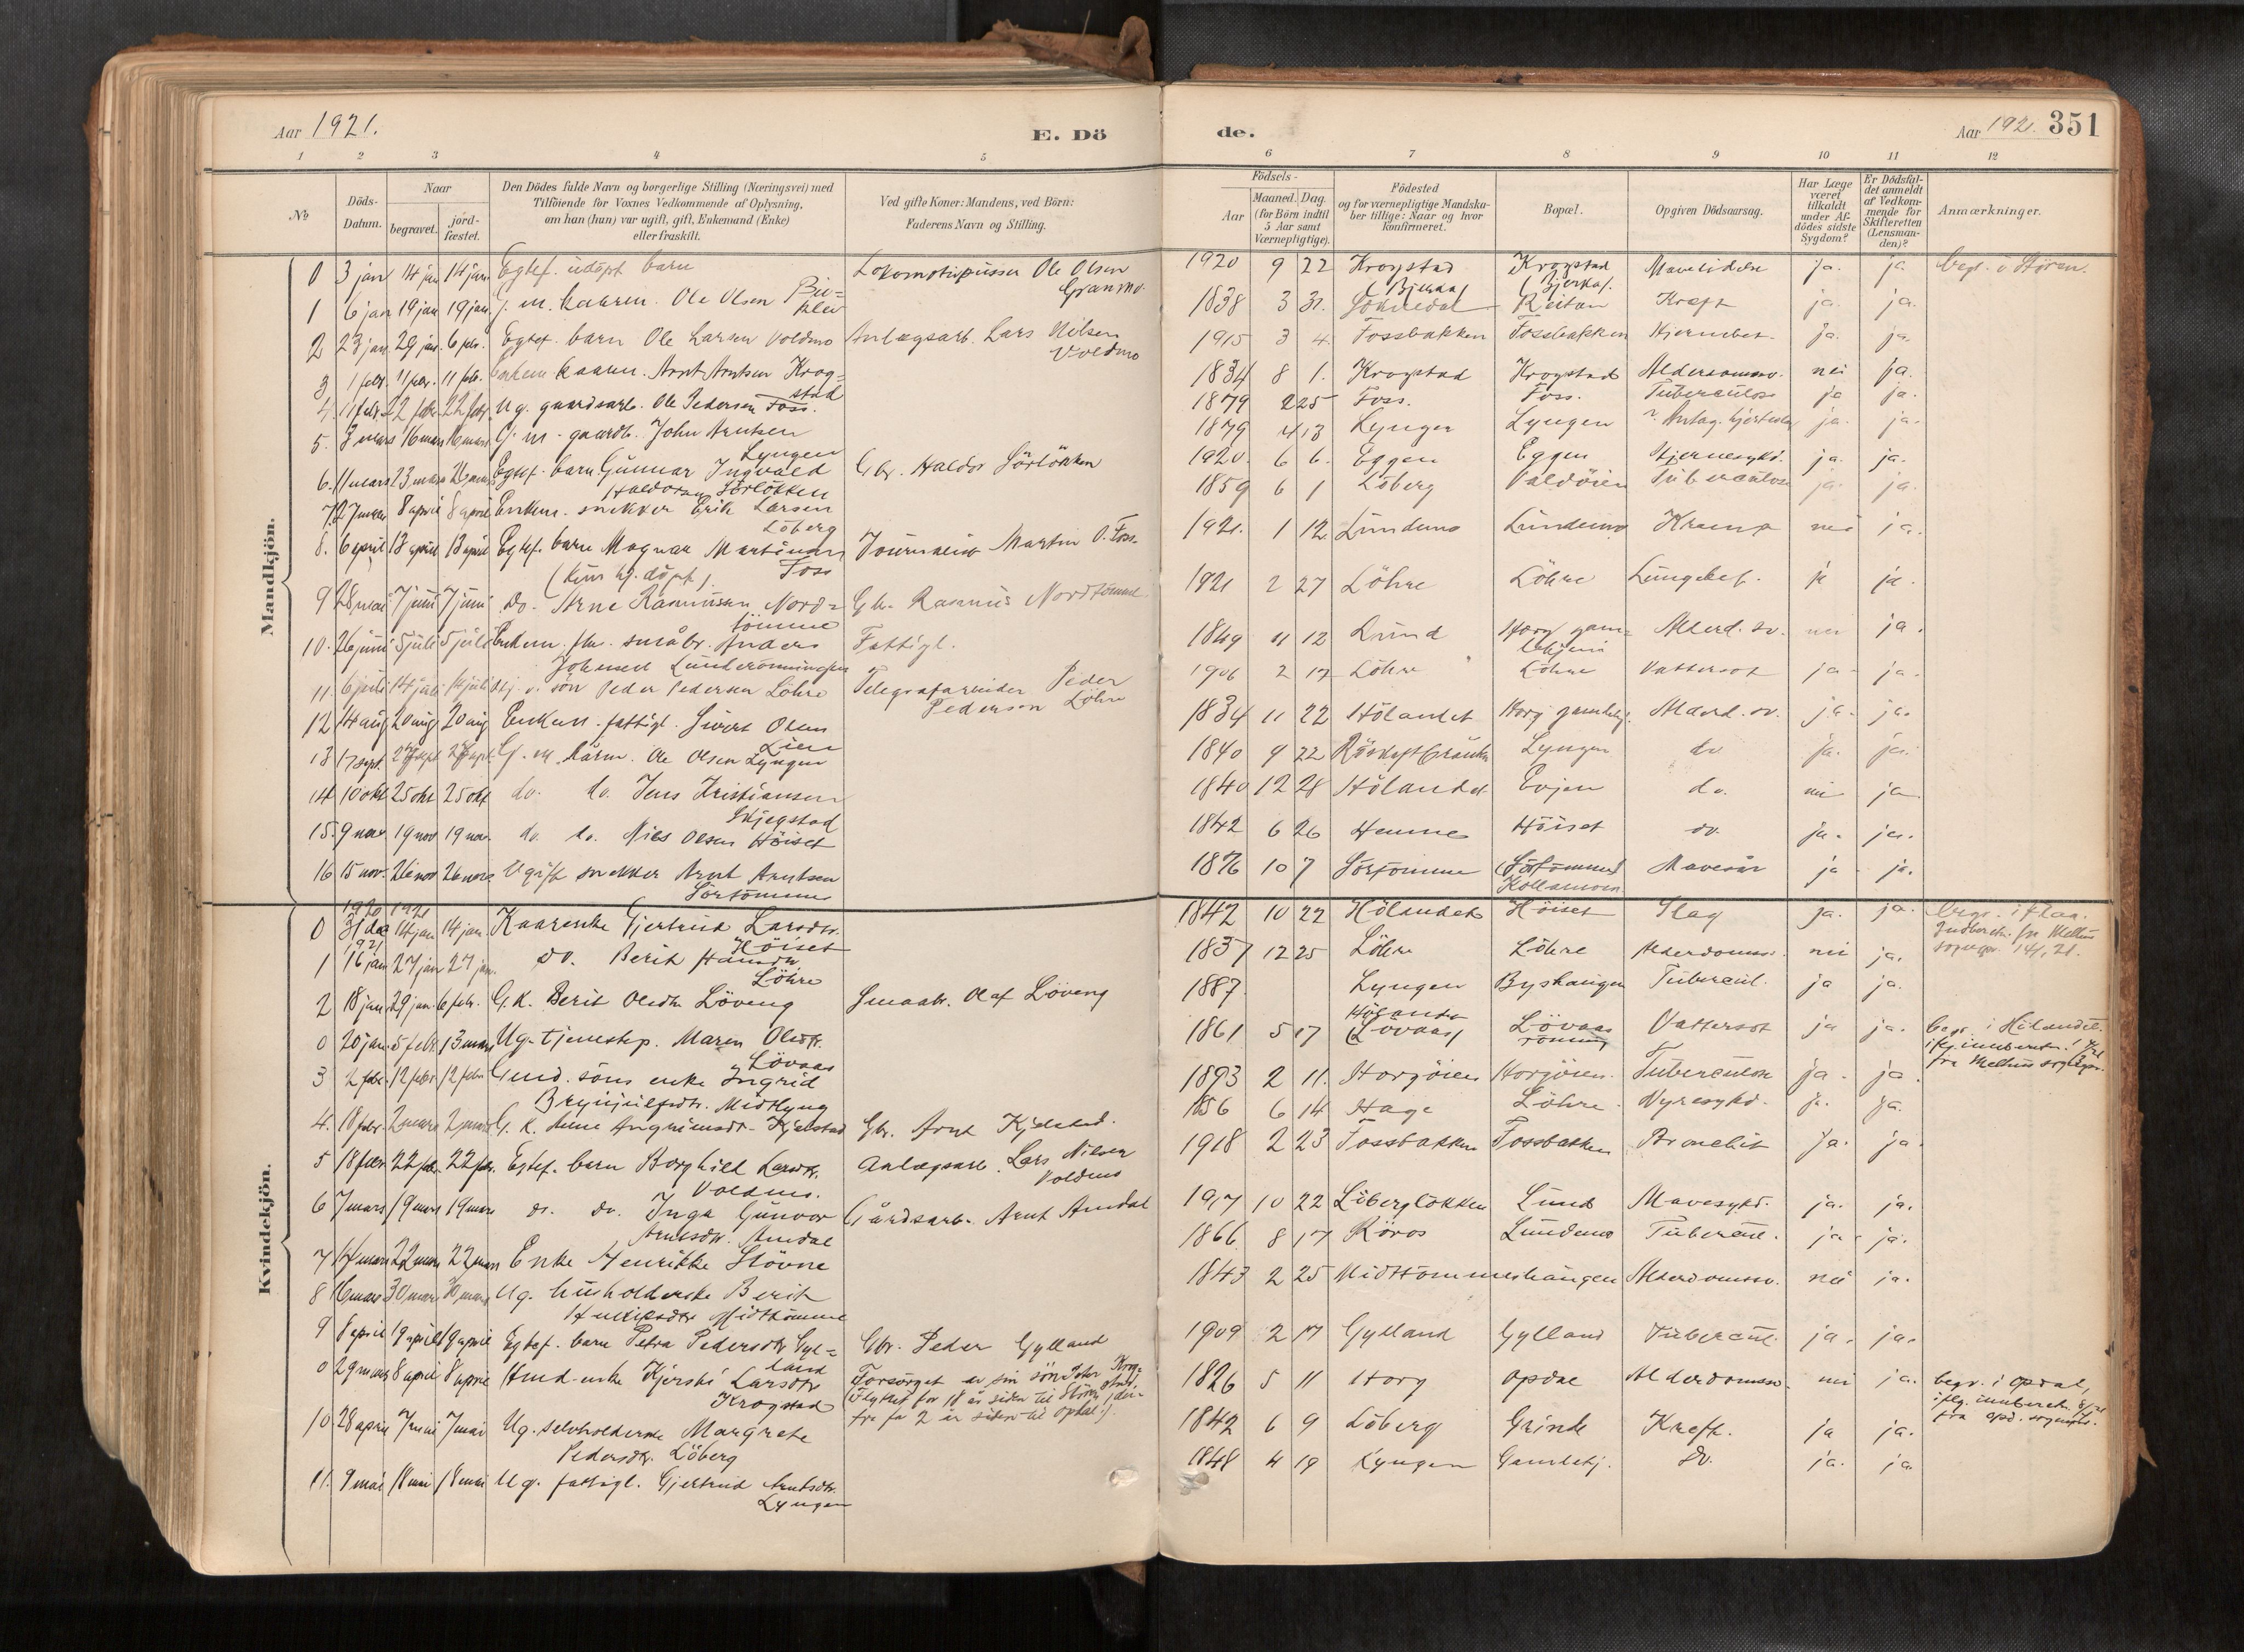 Aar 1921.
E. Dö
de.
Aar 1921.
351
1 2 3 4 5 6 7 8 9 10 11 12
No
Döds-
Datum.
Naar
begravet.
jord-
fæstet.
Den Dödes fulde Navn og borgerlige Stilling (Næringsvei) med
Tilföiende for Voxnes Vedkommende af Oplysning,
om han (hun) var ugift, gift, Enkemand (Enke)
eller fraskilt.
Ved gifte Koner: Mandens, ved Börn:
Faderens Navn og Stilling.
Födsels-
Aar
Maaned. Dag.
(for Börn indtil
5 Aar samt
Værnepligtige).
Födested
og for værnepligtige Mandska-
ber tillige: Naar og hvor
konfirmeret.
Bopæl.
Opgiven Dödsaarsag.
Har Læge
været
tilkaldt
under Af-
dödes sidste
Sygdom?
Er Dödsfal-
det anmeldt
af Vedkom-
mende for
Skifteretten
(Lensman-
den)?
Anmærkninger.
Mandkjön.
0 3 jan 14 jan 14 jan Egtef. udöpt barn Lokomotivpusser Ole Olsen Granmo. 1920 9 22 Krogstad (Bjerkas) Krogstad (Bjerkas). Mavelidelse ja. ja begr. i Støren.
1 6 jan 19 jan 19 jan. G. m. kaarm. Ole Olsen 1838 3 31. Soknedal Reitan Kræft ja. ja.
2 23 jan 29 jan. 6 febr. Egtef. barn Ole Larsen Voldmo Anlægsarb. Lars Nilsen Voldmo 1915 3 4. Fossbakken Fossbakken Hjernebet. ja. ja.
3 1 febr. 11 febr. 11 feb. Enkem kaarm. Arnt Arntsen Krog=
stad 1834 8 1. Krogstad Krogstad Alderdomssv. nei ja.
4. 11 febr. 22 febr. 22 febr. Ug. gaardsarb. Ole Pedersen Foss. 1879 2 25 Foss. Foss. Tuberculose ja ja.
5. 3 mars 16 mars 16 mars G. m. gaardb. John Arntsen
Lyngen 1879 4 13 Lyngen Lyngen ? Antag. hjerteslag ja. ja.
6. 11 mars 23 mars 23 mars Egtef. barn Gunnar Ingvald
Haldorsen Sörlökken Gbr. Haldor Sörlökken 1920. 6 6. Eggen Eggen Hjernesykd. ja. ja.
7. 27 mars 8 april 8 april Enkem. snekker Erik Larsen
Löberg 1859 6 1 Löberg Valdöien Tuberculose ja. ja.
8. 6 april 13 april 13 april Egtef. barn Magnar Martinsen
Foss (kun hj. döpt). Journalist Martin O. Foss 1921. 1 12. Lundemo Lundemo Krampe nei ja.
9 28 mai 7 juni 7 juni do. Arne Rasmussen Nord=
tömme Gbr. Rasmus Nordtömme 1921 2 27 Löhre Löhre Lungebet. ja ja.
10. 26 juni 5 juli 5 juli Enkem. fhv. småbr. Anders
Johnsen Lunderönningen Fattigl. 1849 11 12 Lund Horg gam=
lehjem Alderd. sv. nei ja.
11. 6 juli 14 juli 14 juli sön Peder Pedersen Löhre Telegrafarbeider Peder
Pedersen Löhre 1906 2 17 Löhre Löhre Vattersot ja ja.
12 14 aug 20 aug 20 aug Enkem. fattigl. Sivert Olsen
Lien 1834 11 22 Hölandet Horg gamlehj. Alderd. sv. ja. ja.
13 17 sept. 27 sept 27 sept. G. m. kårm. Ole Olsen Lyngen 1840 9 22 Lyngen do ja. ja.
14 10 okt 25 okt 25 okt do. do. Jens Kristiansen
Skjegstad 1840 12 28 Hölandet Evjen do. nei ja
15. 9 nov. 19 nov 19 nov. do. do. Nils Olsen Höiset 1842 6 26 Hemme Höiset do. ja. ja.
16 15 nov. 26 nov 26 nov. Ugift snekker Arnt Arntsen
Sörtömme 1876 10 7 Sörtömme (Sörtömme) Kollamoen Mavesår ja ja.
Kvindekjön.
1920 1921
0 31 des 14 jan 14 jan. Kaarenke Gjertrud Larsdtr.
Höiset 1842 10 22 Hölandet Höiset Slag ja. ja. begr. i Flaa.
Indberetn. fra Melhus
sogepr. 14/1. 21.
1921
1 16 jan 27 jan 27 jan. do. Berit Hansdtr
Löhre 1837 12 25 Löhre Löhre Alderdomss. nei ja.
2 18 jan 29 jan. 6 febr. G. K. Berit Olsdtr. Löveng Smaabr. Olaf Löveng 1887. Lyngen Byshaugen Tubercul. ja ja.
0 20 jan. 5 febr. 13 mars Ug. tjenestep. Maren Olsdtr.
Lövaas 1861 5 17 Hölandet
(Lövaas) Lövaas
rönning Vattersot ja ja. begr. i Hölandet.
iflg. innberetn.
fra Melhus sogepr.
3 2 febr. 12 febr. 12 febr. Gmd. söns enke Ingrid
Brynjulfsdtr. Midtlyng 1893 2 11. Horgöien Horgöien. Tuberculose ja. ja.
4. 18 febr. 2 mars 2 mars G. K. Anne Ingrimsdtr. Kjelstad Gbr. Arnt Kjelstad. 1856 6 14 Hage Löhre. Nyresykd. ja. ja.
5 18 febr 22 febr. 22 febr. Egtef. barn Borghild Larsdtr.
Voldmo. Anlægsarb. Lars Nilsen
Voldmo 1918 2 23 Fossbakken Fossbakken Bronchit ja. ja.
6 7 mars 19 mars 19 mars do. do. Inga Gunvor
Arntsdtr. Amdal Gårdsarb. Arnt Amdal 1917 10 22 Löberglökken Lund Mavesykd. ja. ja.
7 14 mars 22 mars 22 mars Enke Henrikke Stövne 1866 8 17 Röros Lundemo Tubercul. ja. ja.
8 16 mars 30 mars 30 mars Ug. husholderske Berit
Henriksdtr Midttömme 1843 2 25 Midttömmeshaugen Alderdomssv. nei ja.
9 8 april 19 april 19 april Egtef. barn Petra Pedersdtr Gyl=
land Gbr. Peder Gylland 1909 2 17 Gylland Gylland Tubercul. ja. ja.
0 29 mars 8 april 8 april Hmd. enke Kjersti Larsdtr
Krogstad Forsörget av sin sön Peter Krog=
stad.
(Flyttet for 18 år siden til Stören, der=
fra for 2 år siden til Opdal.) 1826 5 11 Horg Opdal Alderdomssv. nei ja. begr. i Opdal,
iflg. innberetn. 8/4 21
fra opd. sognepr.
10 28 april 7 mai 7 mai Ug. selvholderske Margrete
Pedersdtr. Löberg 1842 6 9 Löberg Grinde Kreft. ja ja.
11. 9 mai 18 mai 18 mai Ug. fattigl. Gjertrud Arntsdtr.
Lyngen 1848 4 19 Lyngen Gamlehj. do. ja. ja.